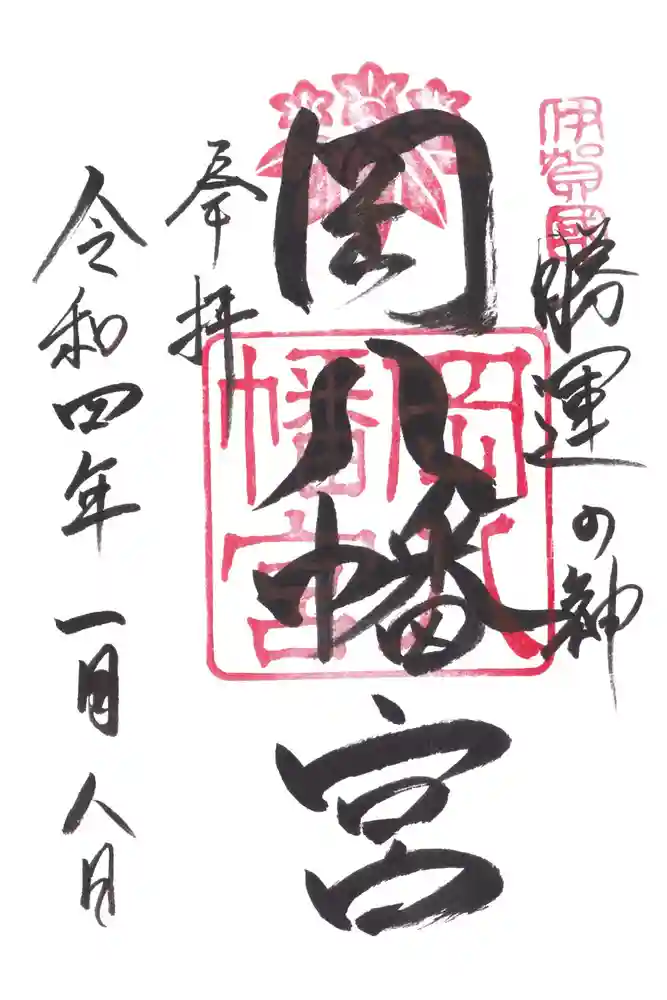 伊賀國
勝運の神
岡八幡宮
岡八
幡宮
奉拝
令和四年 一月 八日